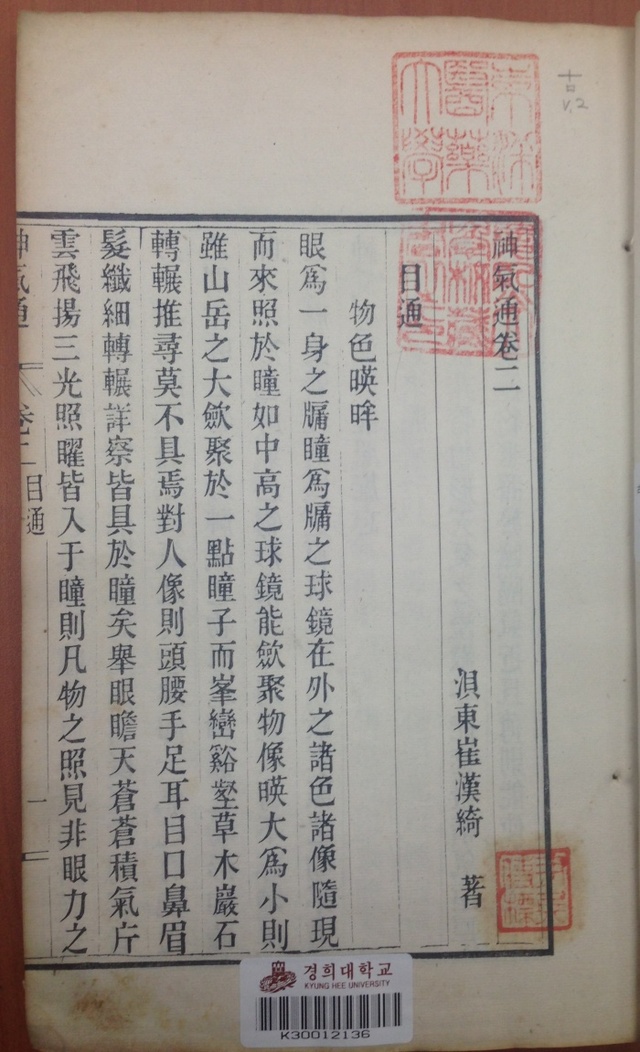 神氣通卷二
浿東崔漢綺 著
目通
物色暎眸
眼爲一身之牖瞳爲牖之球鏡在外之諸色諸像隨現
而來照於瞳如中高之球鏡能歛聚物像暎大爲小則
雖山岳之大歛聚於一點瞳子而峯巒谿壑草木巖石
轉輾推尋莫不具焉對人像則頭腰手足耳目口鼻眉
髮纖細轉輾詳察皆具於瞳矣擧眼瞻天蒼蒼積氣片
雲飛揚三光照矅皆入于瞳則凡物之照見非眼力之
神氣通 卷二 目通 一
東洋
醫藥
大學
古
V.2
경희대학교
KYUNG HEE UNIVERSITY
K30012136